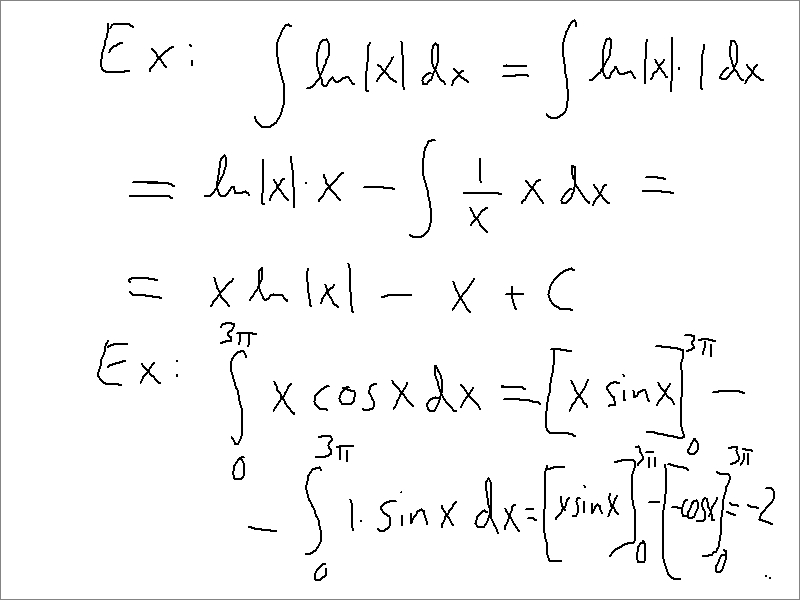 Ex: ∫ ln|x| dx = ∫ ln|x|·1 dx
= ln|x|·x − ∫ 1/x x dx =
= x ln|x| − x + C
Ex: ∫₀^{3π} x cosx dx = [x sinx]₀^{3π} −
− ∫₀^{3π} 1·sinx dx = [x sinx]₀^{3π} − [−cosx]₀^{3π} = −2